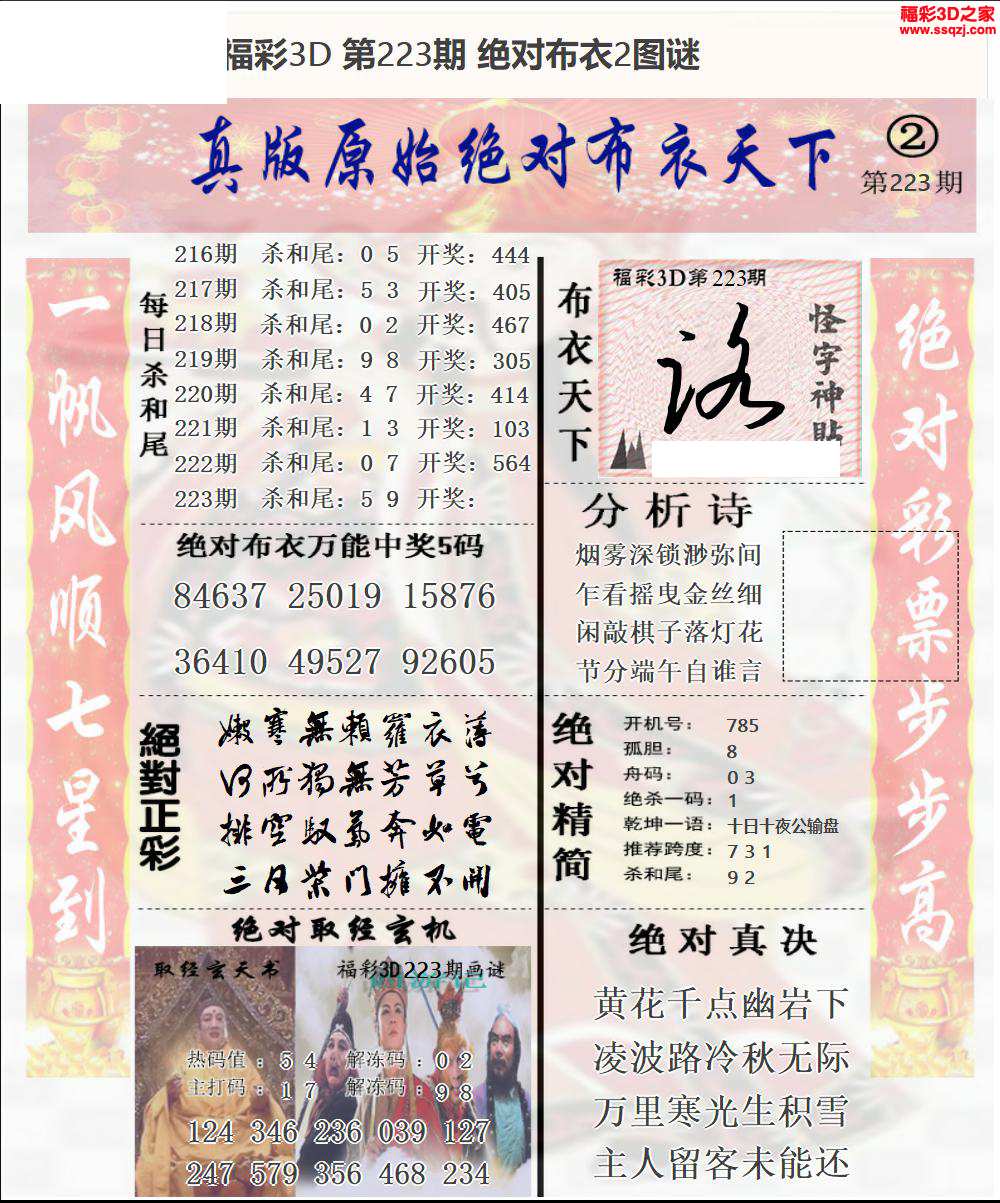 福彩3D之家
www.ssqzj.com
福彩3D 第223期 绝对布衣2图谜
真版原始绝对布衣天下
②
第223期
一帆风顺七星到
每日杀和尾
216期 杀和尾：0 5 开奖：444
217期 杀和尾：5 3 开奖：405
218期 杀和尾：0 2 开奖：467
219期 杀和尾：9 8 开奖：305
220期 杀和尾：4 7 开奖：414
221期 杀和尾：1 3 开奖：103
222期 杀和尾：0 7 开奖：564
223期 杀和尾：5 9 开奖：
绝对布衣万能中奖5码
84637 25019 15876
36410 49527 92605
絕對正彩
嫩寒無賴羅衣薄
何所獨無芳草兮
排空馭氣奔如電
三月柴门擁不開
绝对取经玄机
取经玄天书
福彩3D223期画谜
热码值：5 4 解冻码：0 2
主打码：1 7 解冻码：9 8
124 346 236 039 127
247 579 356 468 234
布衣天下
福彩3D第223期
怪字神貼
分析诗
烟雾深锁渺弥间
乍看摇曳金丝细
闲敲棋子落灯花
节分端午自谁言
绝对精简
开机号：785
孤胆：8
舟码：0 3
绝杀一码：1
乾坤一语：十日十夜公输盘
推荐跨度：7 3 1
杀和尾：9 2
绝对真决
黄花千点幽岩下
凌波路冷秋无际
万里寒光生积雪
主人留客未能还
绝对彩票步步高